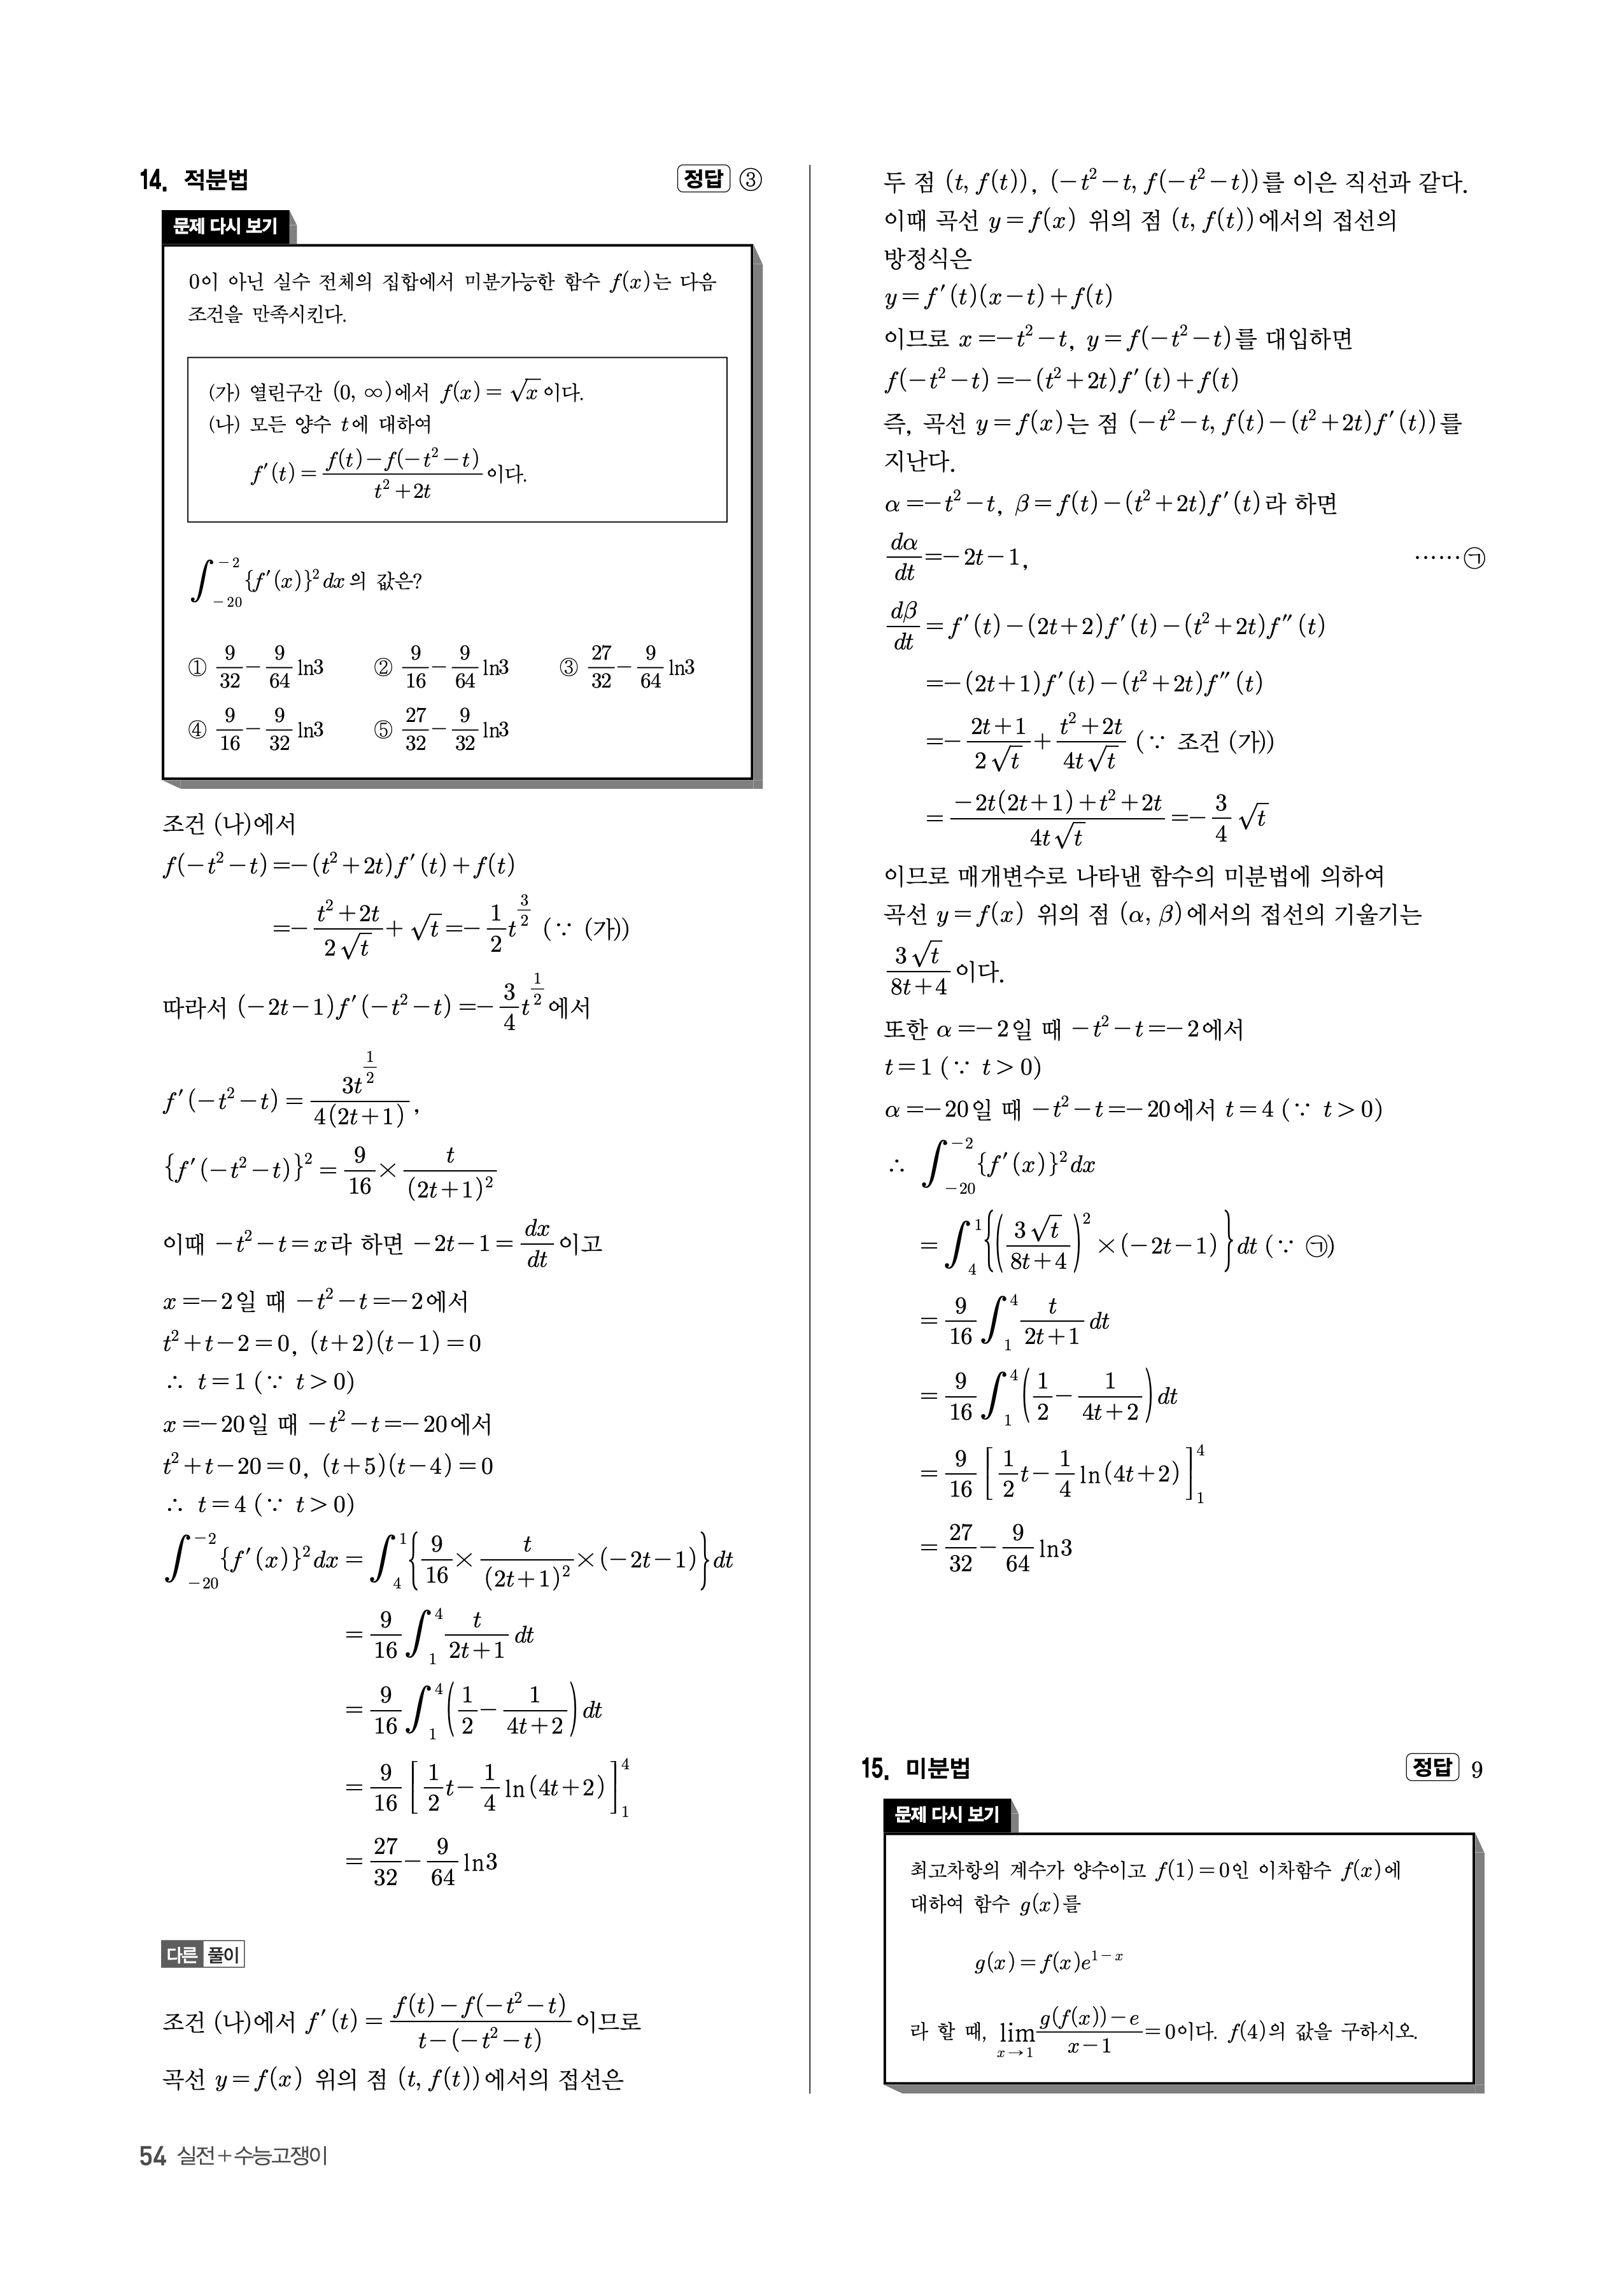 14. 적분법 정답 ③
문제 다시 보기
0이 아닌 실수 전체의 집합에서 미분가능한 함수 f(x)는 다음
조건을 만족시킨다.
(가) 열린구간 (0, ∞)에서 f(x)=√x이다.
(나) 모든 양수 t에 대하여
f′(t)=\frac{f(t)-f(-t²-t)}{t²+2t}이다.
∫_{-20}^{-2}{f′(x)}²dx의 값은?
① \frac{9}{32}-\frac{9}{64}ln3 ② \frac{9}{16}-\frac{9}{64}ln3 ③ \frac{27}{32}-\frac{9}{64}ln3
④ \frac{9}{16}-\frac{9}{32}ln3 ⑤ \frac{27}{32}-\frac{9}{32}ln3
조건 (나)에서
f(-t²-t)=-(t²+2t)f′(t)+f(t)
=-\frac{t²+2t}{2√t}+√t=-\frac{1}{2}t^{\frac{3}{2}} (∵ (가))
따라서 (-2t-1)f′(-t²-t)=-\frac{3}{4}t^{\frac{1}{2}}에서
f′(-t²-t)=\frac{3t^{\frac{1}{2}}}{4(2t+1)},
{f′(-t²-t)}²=\frac{9}{16}×\frac{t}{(2t+1)²}
이때 -t²-t=x라 하면 -2t-1=\frac{dx}{dt}이고
x=-2일 때 -t²-t=-2에서
t²+t-2=0, (t+2)(t-1)=0
∴ t=1 (∵ t>0)
x=-20일 때 -t²-t=-20에서
t²+t-20=0, (t+5)(t-4)=0
∴ t=4 (∵ t>0)
∫_{-20}^{-2}{f′(x)}²dx=∫_{4}^{1}{\frac{9}{16}×\frac{t}{(2t+1)²}×(-2t-1)}dt
=\frac{9}{16}∫_{1}^{4}\frac{t}{2t+1}dt
=\frac{9}{16}∫_{1}^{4}(\frac{1}{2}-\frac{1}{4t+2})dt
=\frac{9}{16}[\frac{1}{2}t-\frac{1}{4}ln(4t+2)]_{1}^{4}
=\frac{27}{32}-\frac{9}{64}ln3
다른 풀이
조건 (나)에서 f′(t)=\frac{f(t)-f(-t²-t)}{t-(-t²-t)}이므로
곡선 y=f(x) 위의 점 (t, f(t))에서의 접선은
두 점 (t, f(t)), (-t²-t, f(-t²-t))를 이은 직선과 같다.
이때 곡선 y=f(x) 위의 점 (t, f(t))에서의 접선의
방정식은
y=f′(t)(x-t)+f(t)
이므로 x=-t²-t, y=f(-t²-t)를 대입하면
f(-t²-t)=-(t²+2t)f′(t)+f(t)
즉, 곡선 y=f(x)는 점 (-t²-t, f(t)-(t²+2t)f′(t))를
지난다.
α=-t²-t, β=f(t)-(t²+2t)f′(t)라 하면
\frac{dα}{dt}=-2t-1, ······㉠
\frac{dβ}{dt}=f′(t)-(2t+2)f′(t)-(t²+2t)f″(t)
=-(2t+1)f′(t)-(t²+2t)f″(t)
=-\frac{2t+1}{2√t}+\frac{t²+2t}{4t√t} (∵ 조건 (가))
=\frac{-2t(2t+1)+t²+2t}{4t√t}=-\frac{3}{4}√t
이므로 매개변수로 나타낸 함수의 미분법에 의하여
곡선 y=f(x) 위의 점 (α, β)에서의 접선의 기울기는
\frac{3√t}{8t+4}이다.
또한 α=-2일 때 -t²-t=-2에서
t=1 (∵ t>0)
α=-20일 때 -t²-t=-20에서 t=4 (∵ t>0)
∴ ∫_{-20}^{-2}{f′(x)}²dx
=∫_{4}^{1}{(\frac{3√t}{8t+4})²×(-2t-1)}dt (∵ ㉠)
=\frac{9}{16}∫_{1}^{4}\frac{t}{2t+1}dt
=\frac{9}{16}∫_{1}^{4}(\frac{1}{2}-\frac{1}{4t+2})dt
=\frac{9}{16}[\frac{1}{2}t-\frac{1}{4}ln(4t+2)]_{1}^{4}
=\frac{27}{32}-\frac{9}{64}ln3
15. 미분법 정답 9
문제 다시 보기
최고차항의 계수가 양수이고 f(1)=0인 이차함수 f(x)에
대하여 함수 g(x)를
g(x)=f(x)e^{1-x}
라 할 때, lim_{x→1}\frac{g(f(x))-e}{x-1}=0이다. f(4)의 값을 구하시오.
54 실전+수능고쟁이